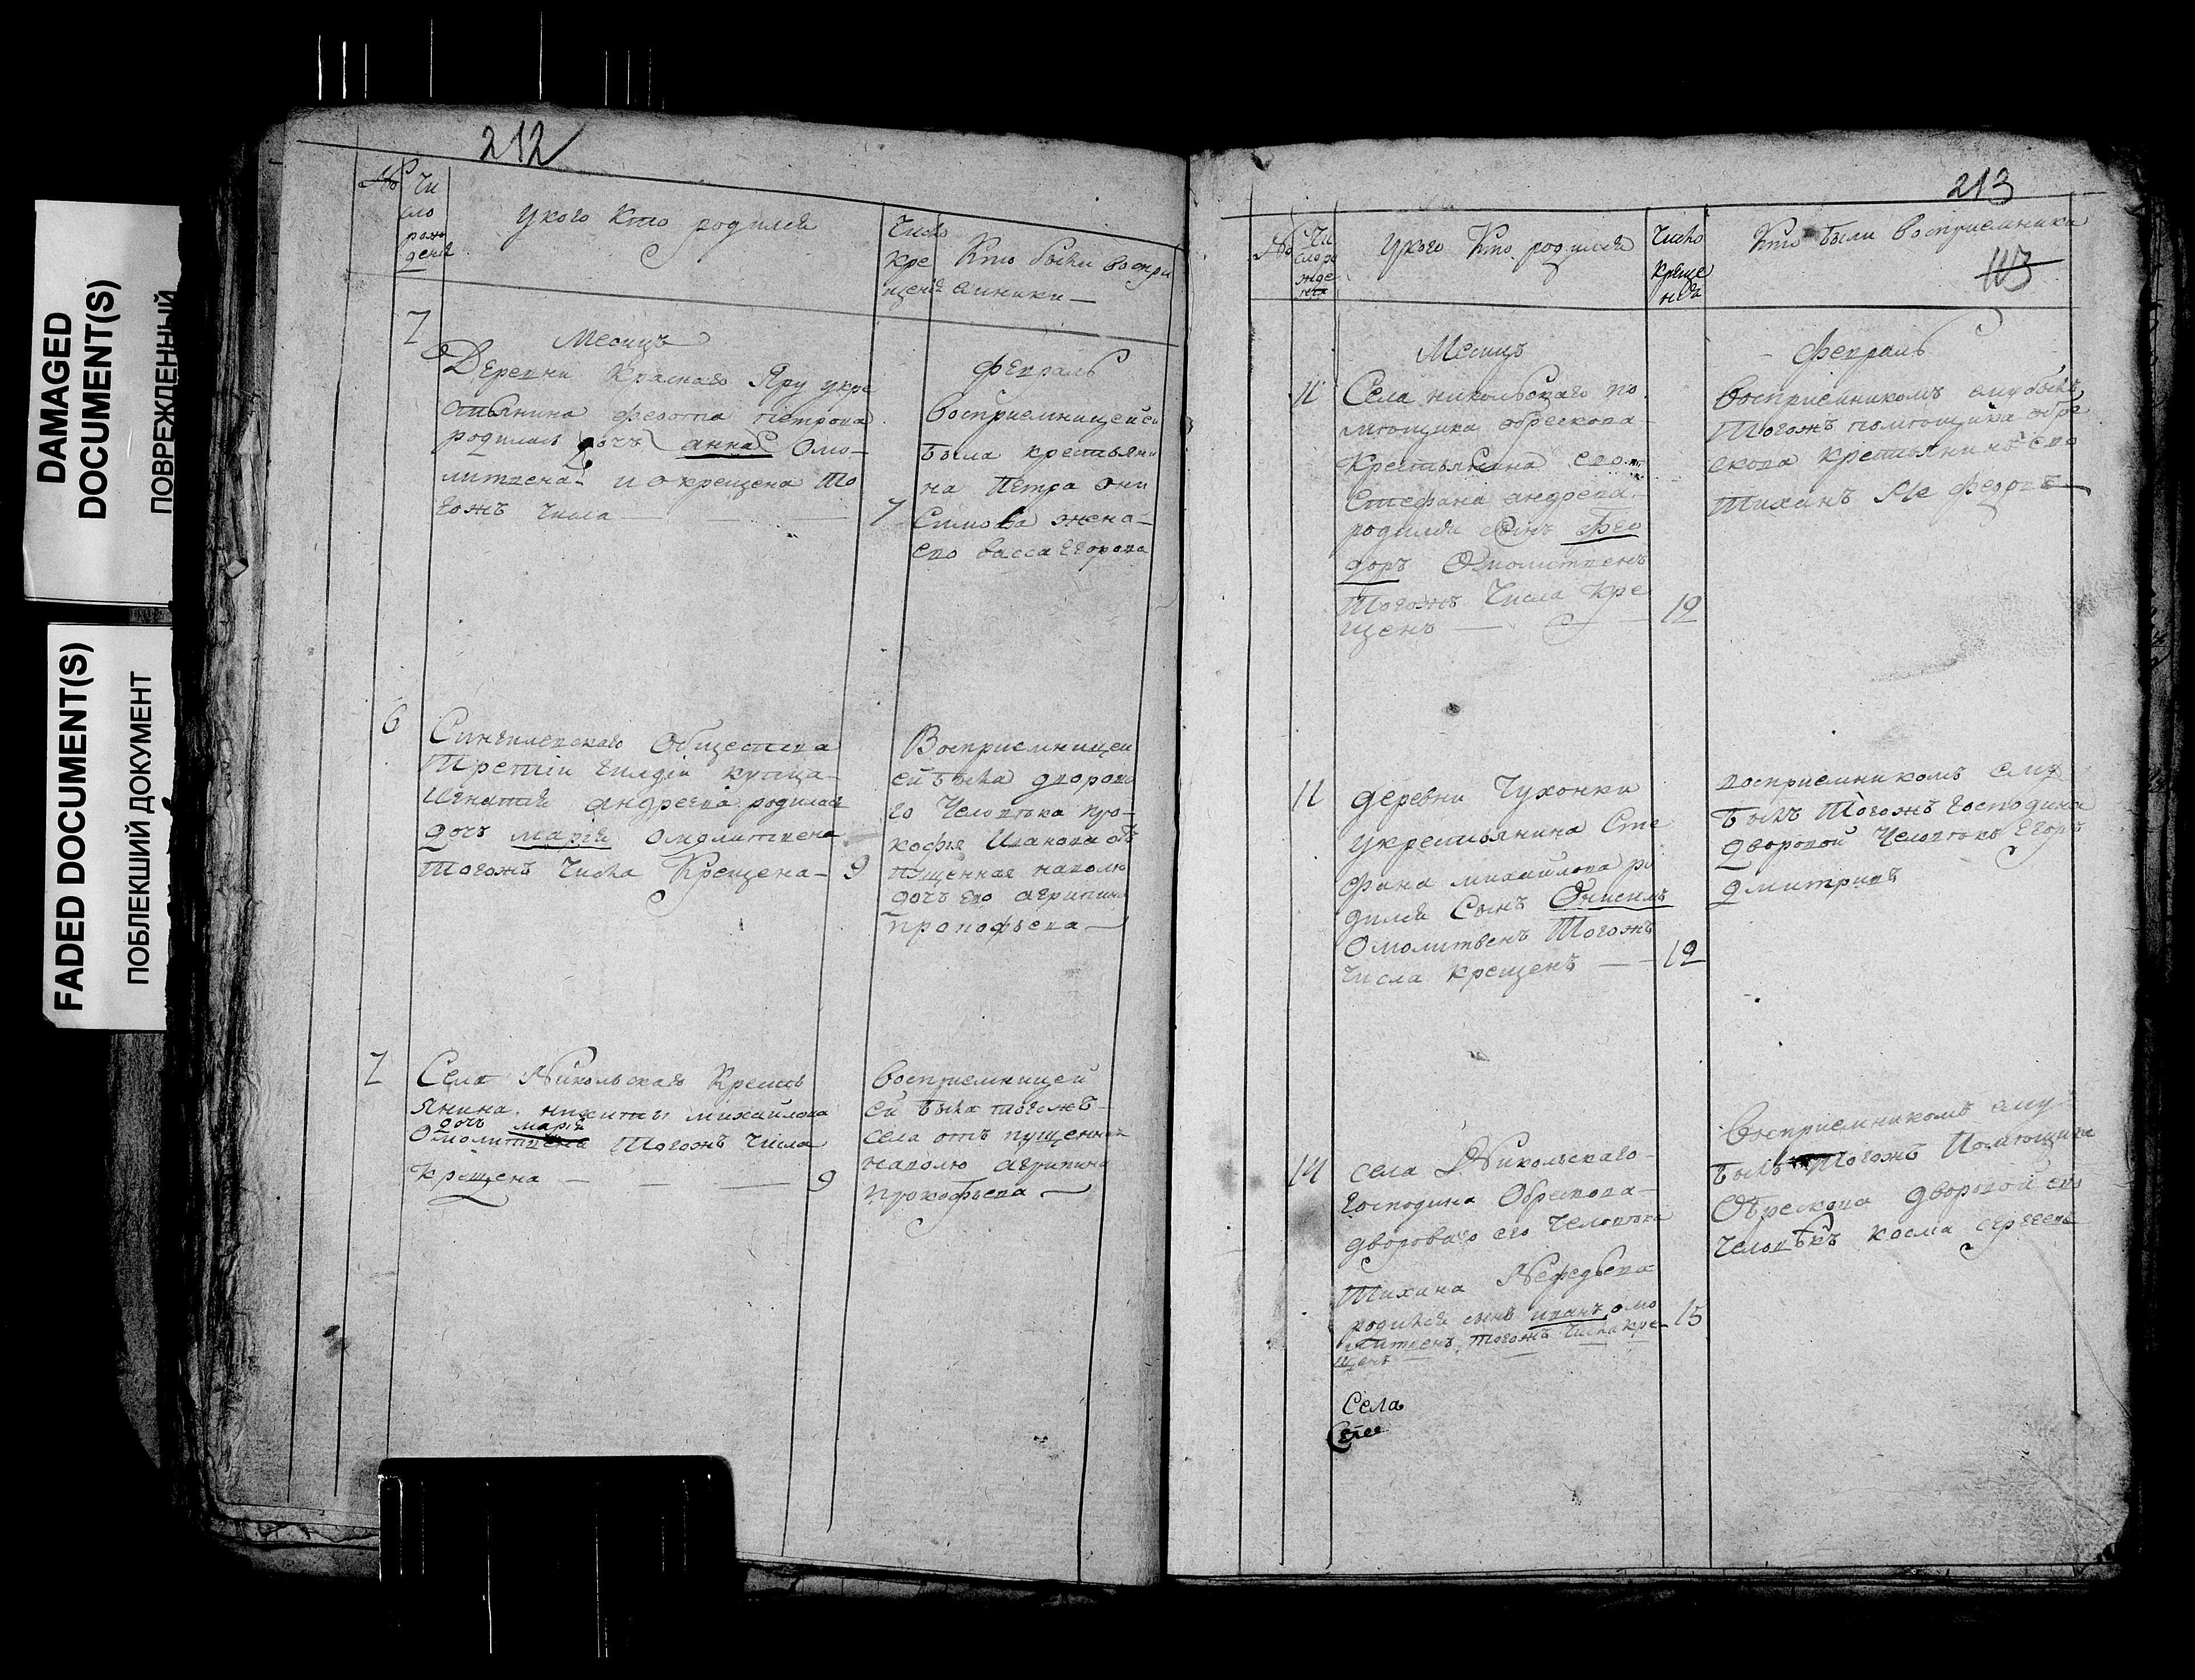 DAMAGED
DOCUMENT(S)
ПОВРЕЖДЕННЫЙ
FADED DOCUMENT(S)
ПОБЛЕКШИЙ ДОКУМЕНТ
212
№
Чи
сло
рож
дения
У кого кто родился
Число
кре
щения
Кто были воспри
емники —
Месяцъ
Февраль
7
Деревни Краснаго Яру у кре
стьянина Федота Петрова
родилась дочь анна Омо—
литвена и окрещена то
гожъ числа — — —
7
Восприемницей ей
была крестьяни
на Петра Они
симова жена
ево васса Егорова
6
Сингилевскаго Общества
Третiи гилдiи купца
Игнатiя андреева родилась
дочь марiя омолитвена
тогожъ числа Крещена —
9
Восприемницей
ей была дворова
го Человѣка про
кофья Иванова от
пущенная наволю
дочь ево агрипина
прокофьева —
7
Села Никольскаго Кресть
янина никиты михайлова
дочь марiя
Омолитвена тогожъ числа
Крещена — — —
9
Восприемницей
ей была тогожъ
села отъ пущенная
наволю агрипина
прокофьева —
213
113
№
Чи
сло ро
жде
нiя
У кого Кто родился
Число
креще
нiя
Кто были восприемники
Месяцъ
Февраль
11
Села никольскаго по
мѣщика обрескова
Крестьянина ево
Стефана андреева
родился сынъ Фео
доръ Омолитвенъ
Тогожъ Числа кре
щенъ — —
12
восприемникомъ ему былъ
Тогожъ помѣщика обре
скова крестьянинъ ево
Тихинъ Не федовъ —
11
деревни Чухонки
у крестьянина Сте
фана михайлова ро
дился Сынъ Онисимъ
Омолитвенъ Тогожъ
числа крещенъ —
12
восприемникомъ ему
былъ Тогожъ господина
дворовой Человѣкъ Егоръ
дмитриевъ
14
села Никольскаго
господина Обрескова
двороваго его Человѣка
Тихина Нефедьева
родился сынъ иванъ омо
литвенъ тогожъ числа кре
щенъ
15
Восприемникомъ ему
былъ Тогожъ Помѣщика
Обрескова дворовой ево
Человѣкъ косма сергеевъ
Села